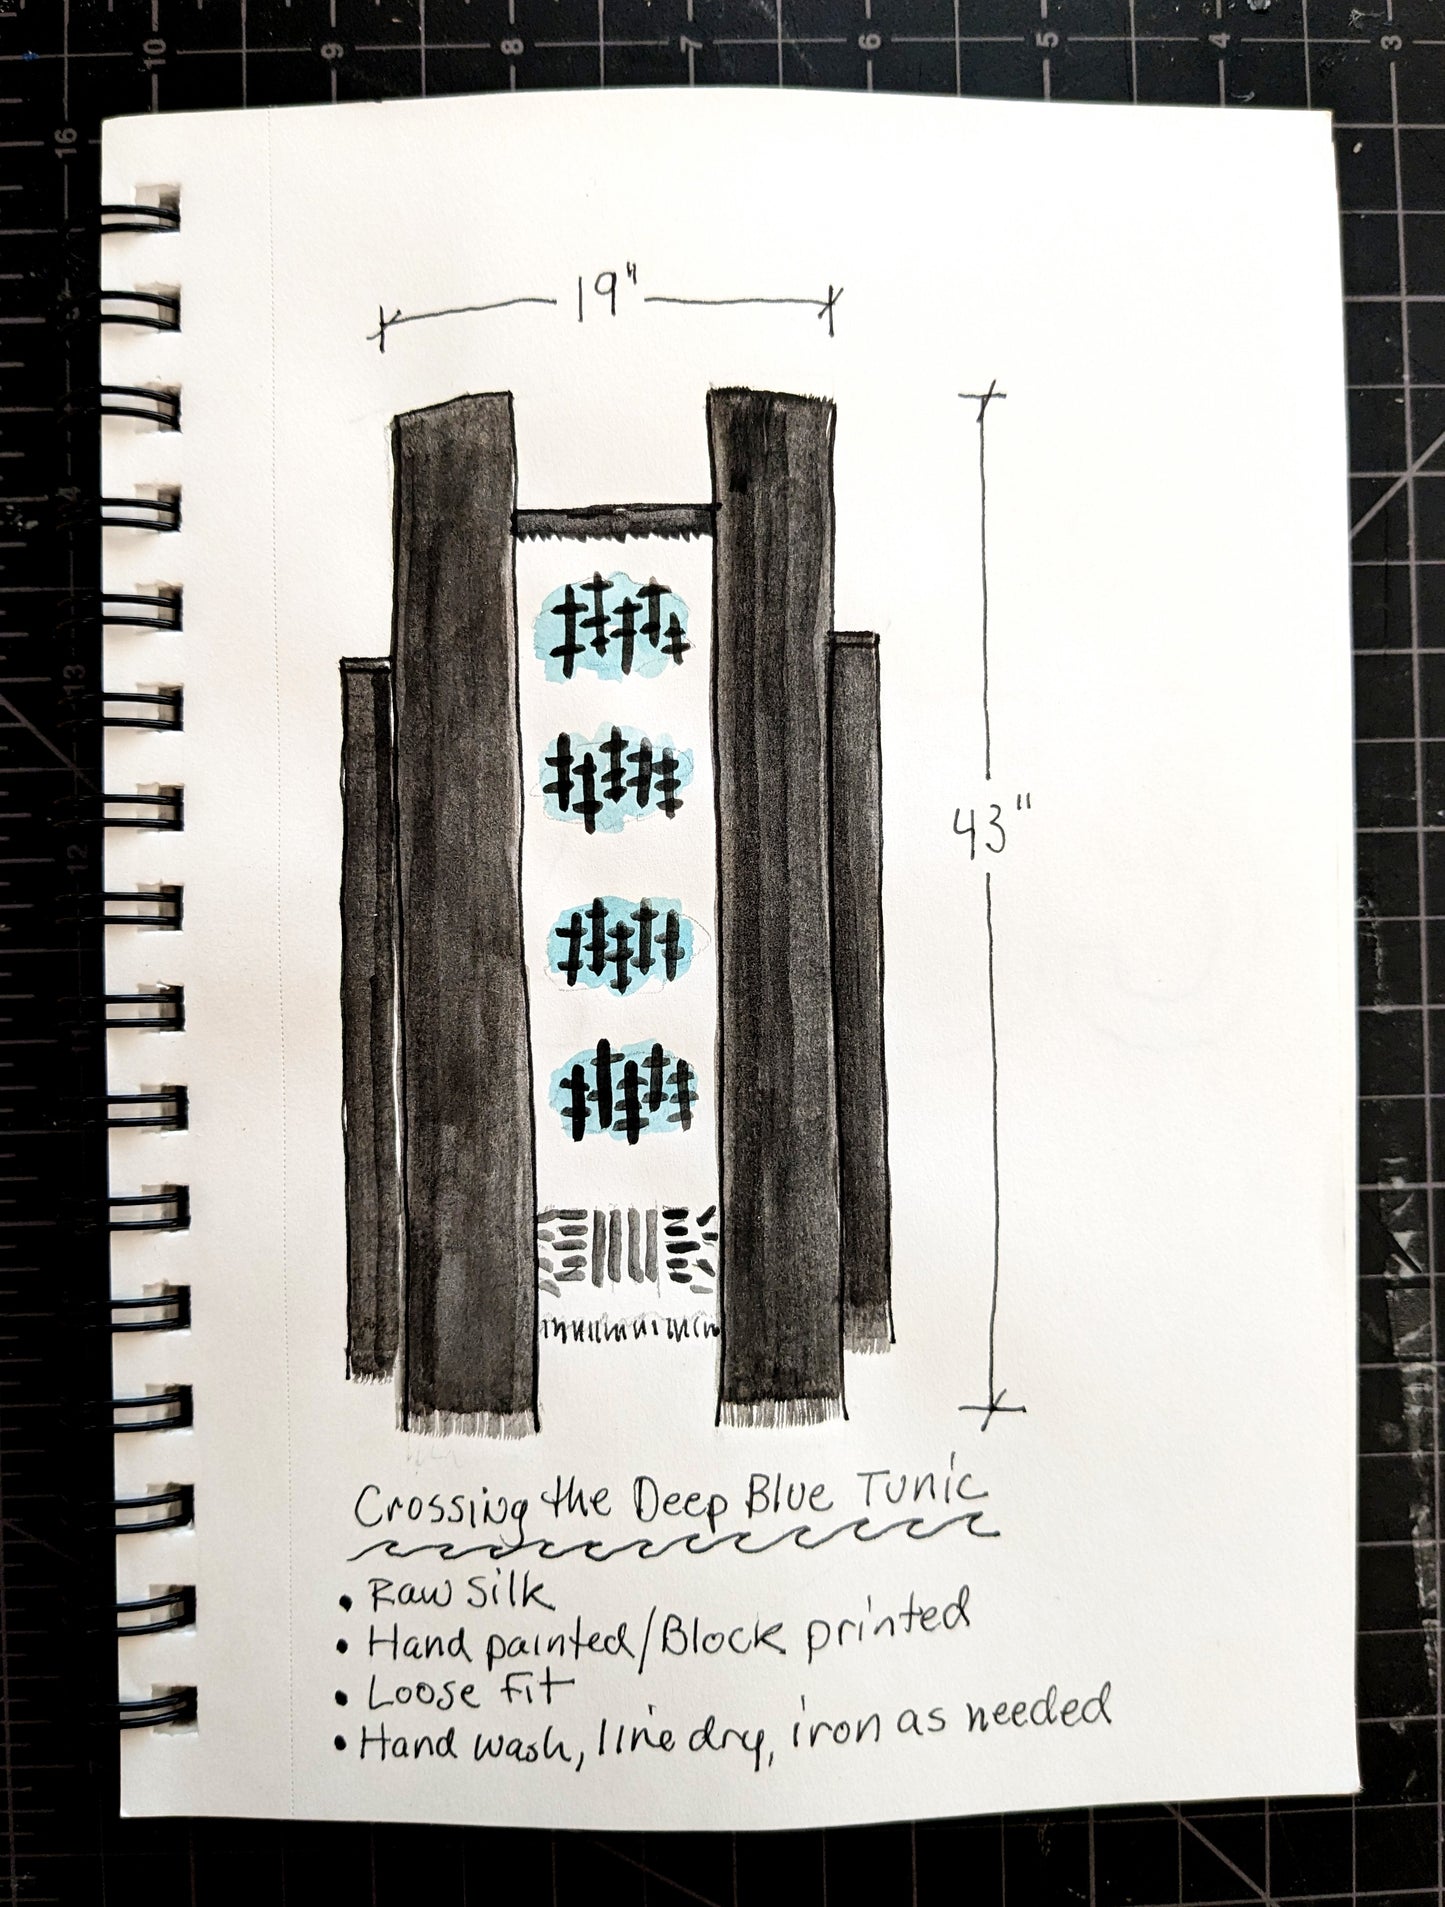 10 9 8 7 6 5 4 3
16
14
13
12
11
19"
43"
Crossing the Deep Blue Tunic
• Raw Silk
• Hand painted/Block printed
• Loose Fit
• Hand wash, line dry, iron as needed